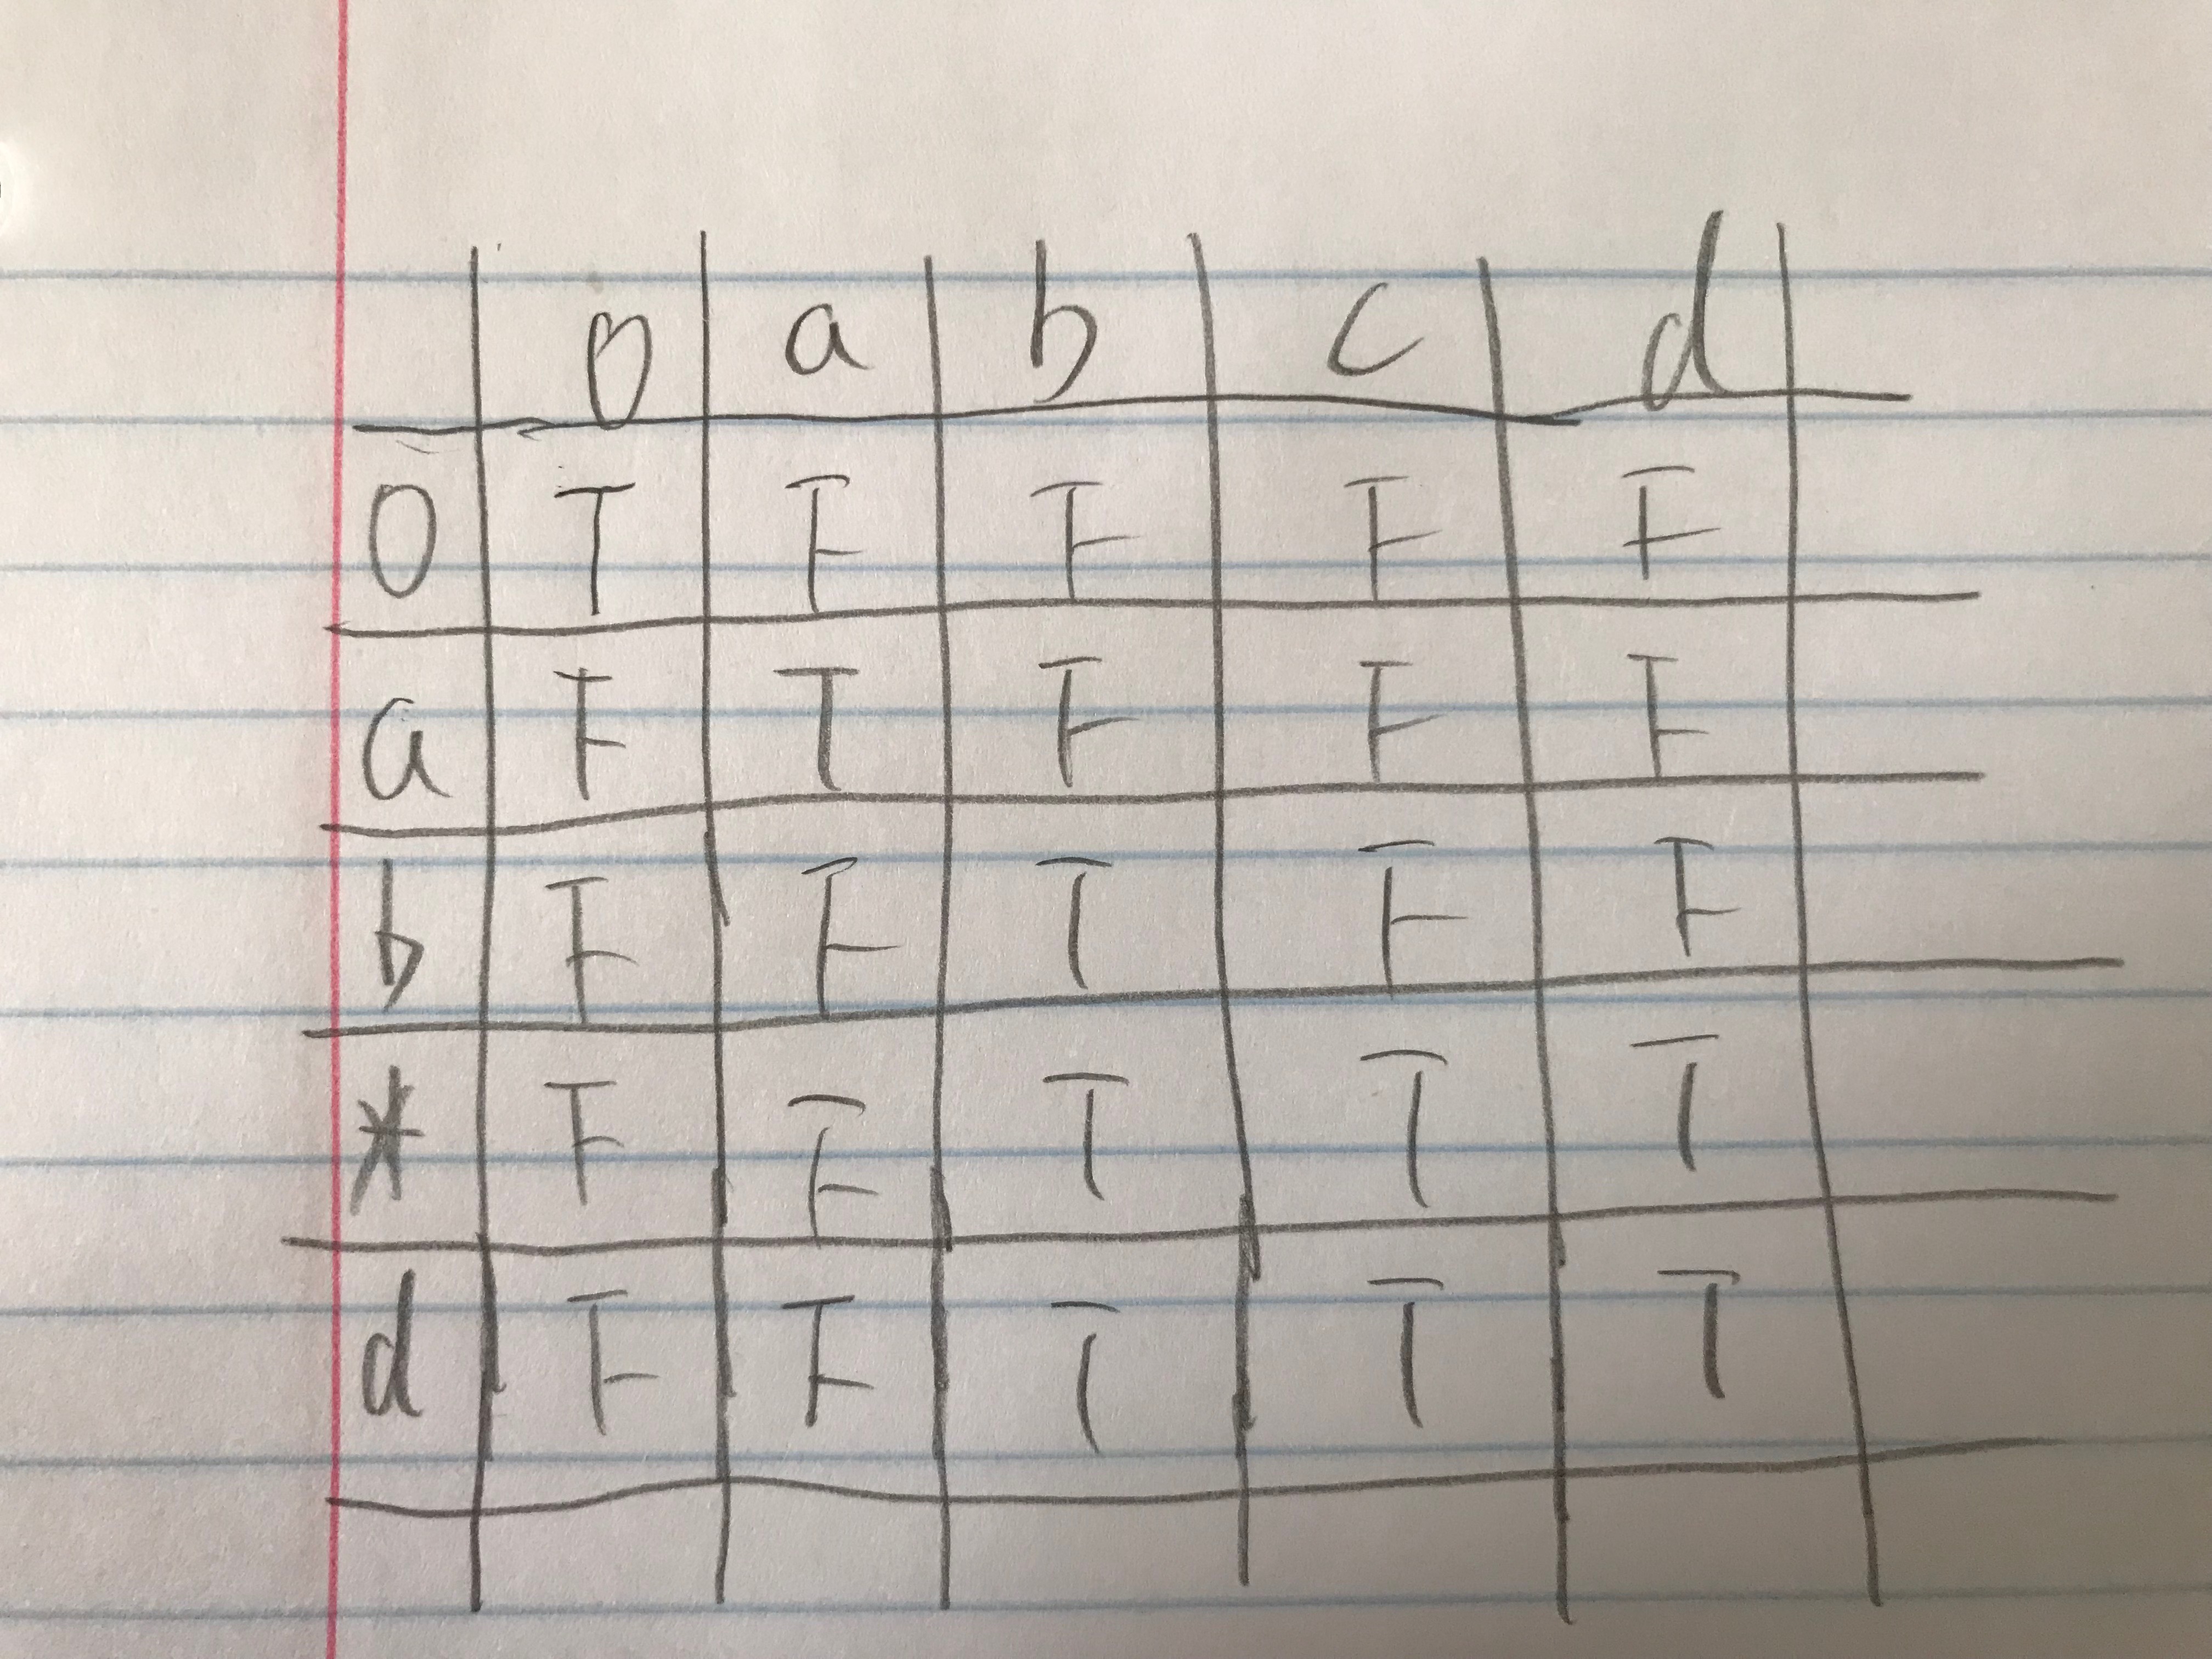 0 a b c d
0 T F F F F
a F T F F F
b F F T F F
* F F T T T
d F F T T T